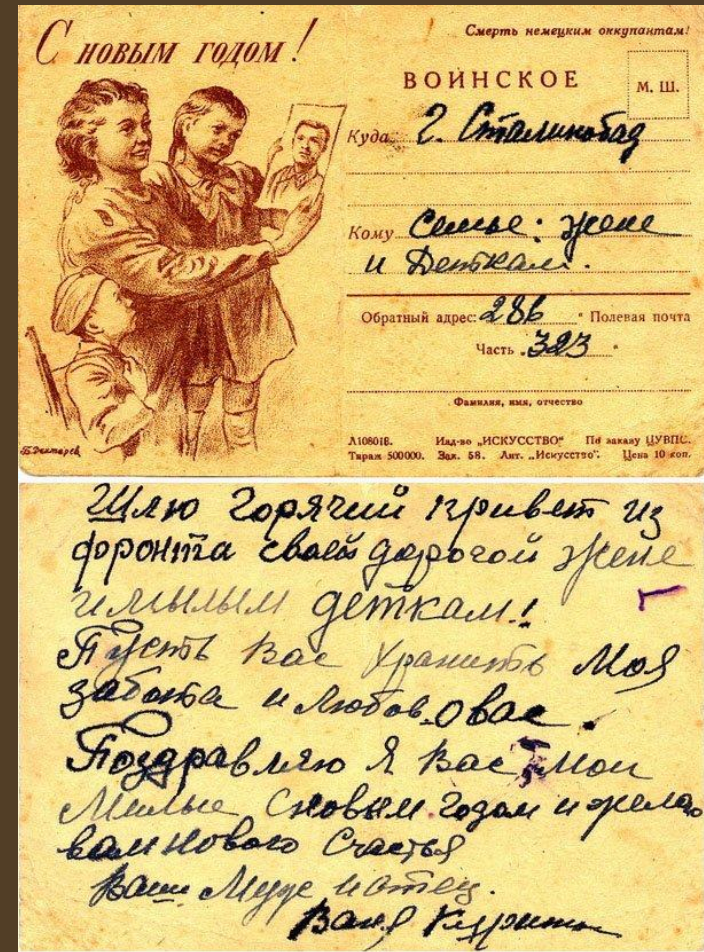 С НОВЫМ ГОДОМ!
Смерть немецким оккупантам!
ВОИНСКОЕ
М. Ш.
Куда г. Сталинобад
Кому Семье: жене
и Деткам.
Обратный адрес: 286 Полевая почта
Часть 323
Фамилия, имя, отчество
Л108018. Изд-во „ИСКУССТВО“ По заказу ЦУВПС.
Тираж 500000. Зак. 58. Лит. „Искусство“. Цена 10 коп.
Шлю горячий привет из
фронта своей дорогой жене
и милым деткам!
Пусть Вас хранить Моя
забота и любов. о вас.
Поздравляю я Вас Мои
Милые С новым годом и желаю
вам нового счастья
Ваш Муж и отец.
Ваня